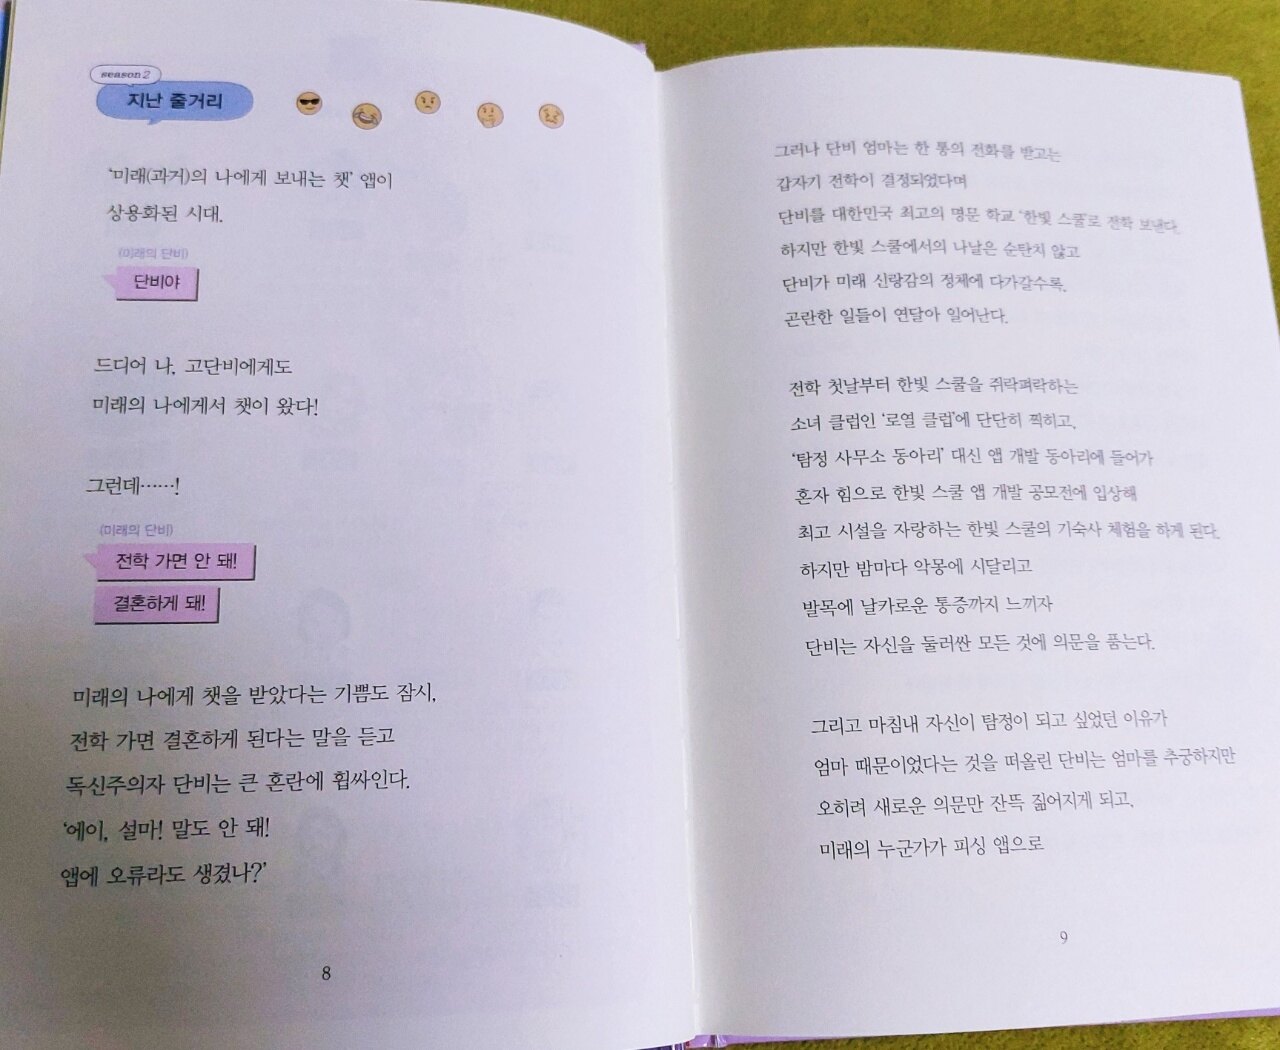 season 2
지난 줄거리
‘미래(과거)의 나에게 보내는 챗’ 앱이
상용화된 시대.
(미래의 단비)
단비야
드디어 나, 고단비에게도
미래의 나에게서 챗이 왔다!
그런데……!
(미래의 단비)
전학 가면 안 돼!
결혼하게 돼!
미래의 나에게 챗을 받았다는 기쁨도 잠시,
전학 가면 결혼하게 된다는 말을 듣고
독신주의자 단비는 큰 혼란에 휩싸인다.
‘에이, 설마! 말도 안 돼!
앱에 오류라도 생겼나?’
8
그러나 단비 엄마는 한 통의 전화를 받고는
갑자기 전학이 결정되었다며
단비를 대한민국 최고의 명문 학교 ‘한빛 스쿨’로 전학 보낸다.
하지만 한빛 스쿨에서의 나날은 순탄치 않고
단비가 미래 신랑감의 정체에 다가갈수록,
곤란한 일들이 연달아 일어난다.
전학 첫날부터 한빛 스쿨을 쥐락펴락하는
소녀 클럽인 ‘로열 클럽’에 단단히 찍히고,
‘탐정 사무소 동아리’ 대신 앱 개발 동아리에 들어가
혼자 힘으로 한빛 스쿨 앱 개발 공모전에 입상해
최고 시설을 자랑하는 한빛 스쿨의 기숙사 체험을 하게 된다.
하지만 밤마다 악몽에 시달리고
발목에 날카로운 통증까지 느끼자
단비는 자신을 둘러싼 모든 것에 의문을 품는다.
그리고 마침내 자신이 탐정이 되고 싶었던 이유가
엄마 때문이었다는 것을 떠올린 단비는 엄마를 추궁하지만
오히려 새로운 의문만 잔뜩 짊어지게 되고,
미래의 누군가가 피싱 앱으로
9